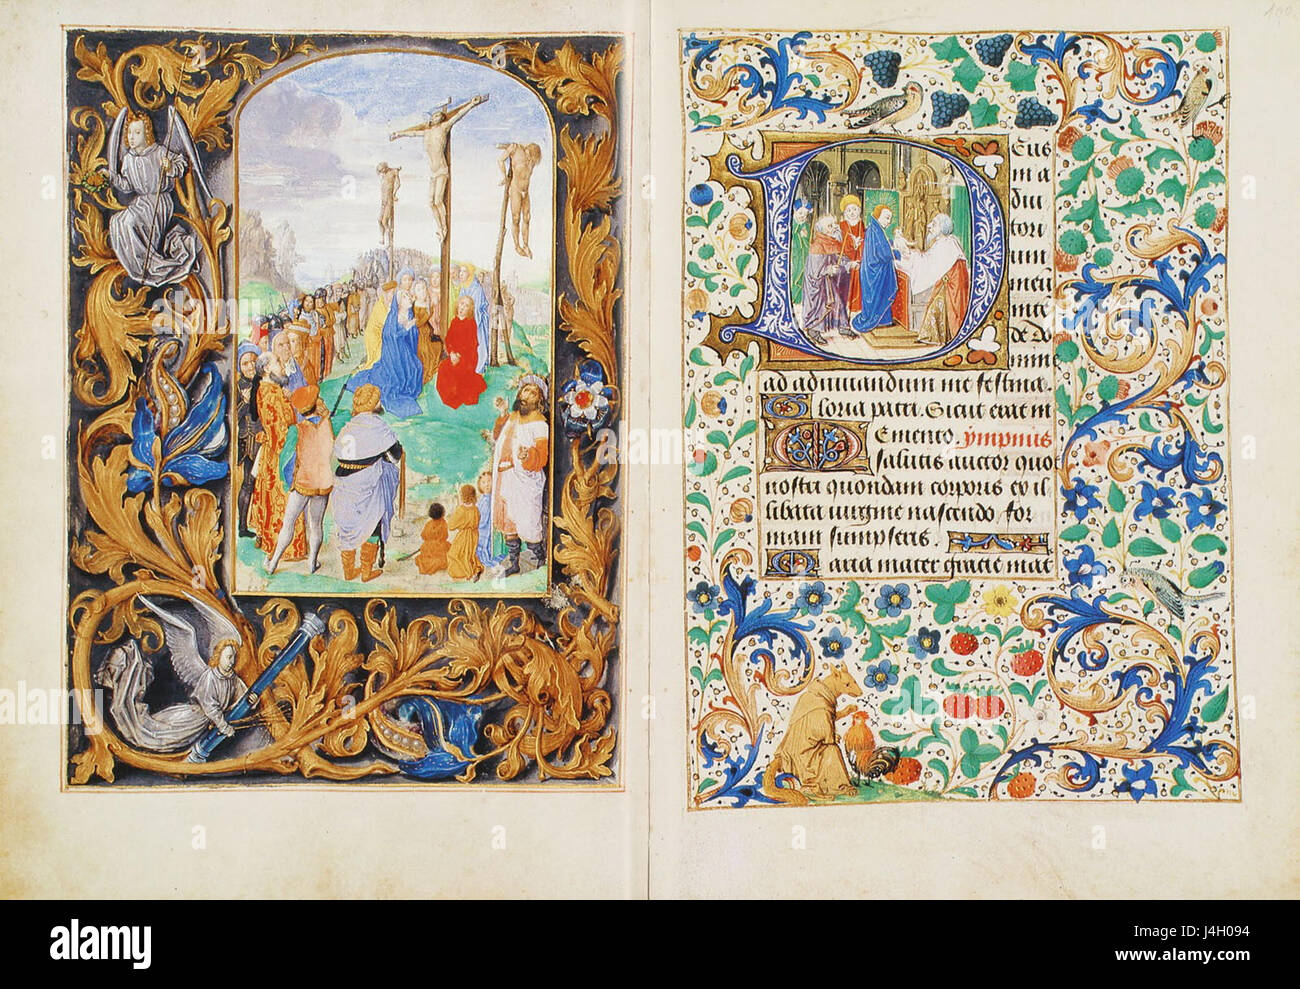 100
D Eus
in a
diu
tori
um
meū
inte
de Do
mine
ad adiuuandum me festina
Gloria patri. Sicut erat in
Memento. ympnus
salutis auctor quo
nostri quondam corporis ex il
libata uirgine nascendo for
mam sumpseris.
Maria mater gracie mat
a
alamy
a
alamy
a
alamy
Image ID: J4H094
www.alamy.com